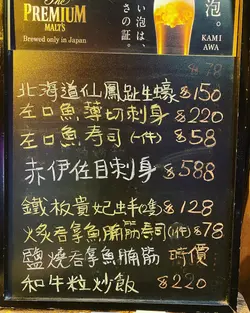 The
PREMIUM
MALT'S
Brewed only in Japan
泡。
い泡は、
さの証。
KAMI
AWA
$78
北海道仙鳳趾生蠔 $150
左口魚薄切刺身 $220
左口魚寿司(一件) $58
赤伊佐目刺身 $588
鐵板貴妃蚌(2隻) $128
炙吞拿魚腩筋寿司(1件) $78
鹽燒吞拿魚腩筋 時價
和牛粒炒飯 $220